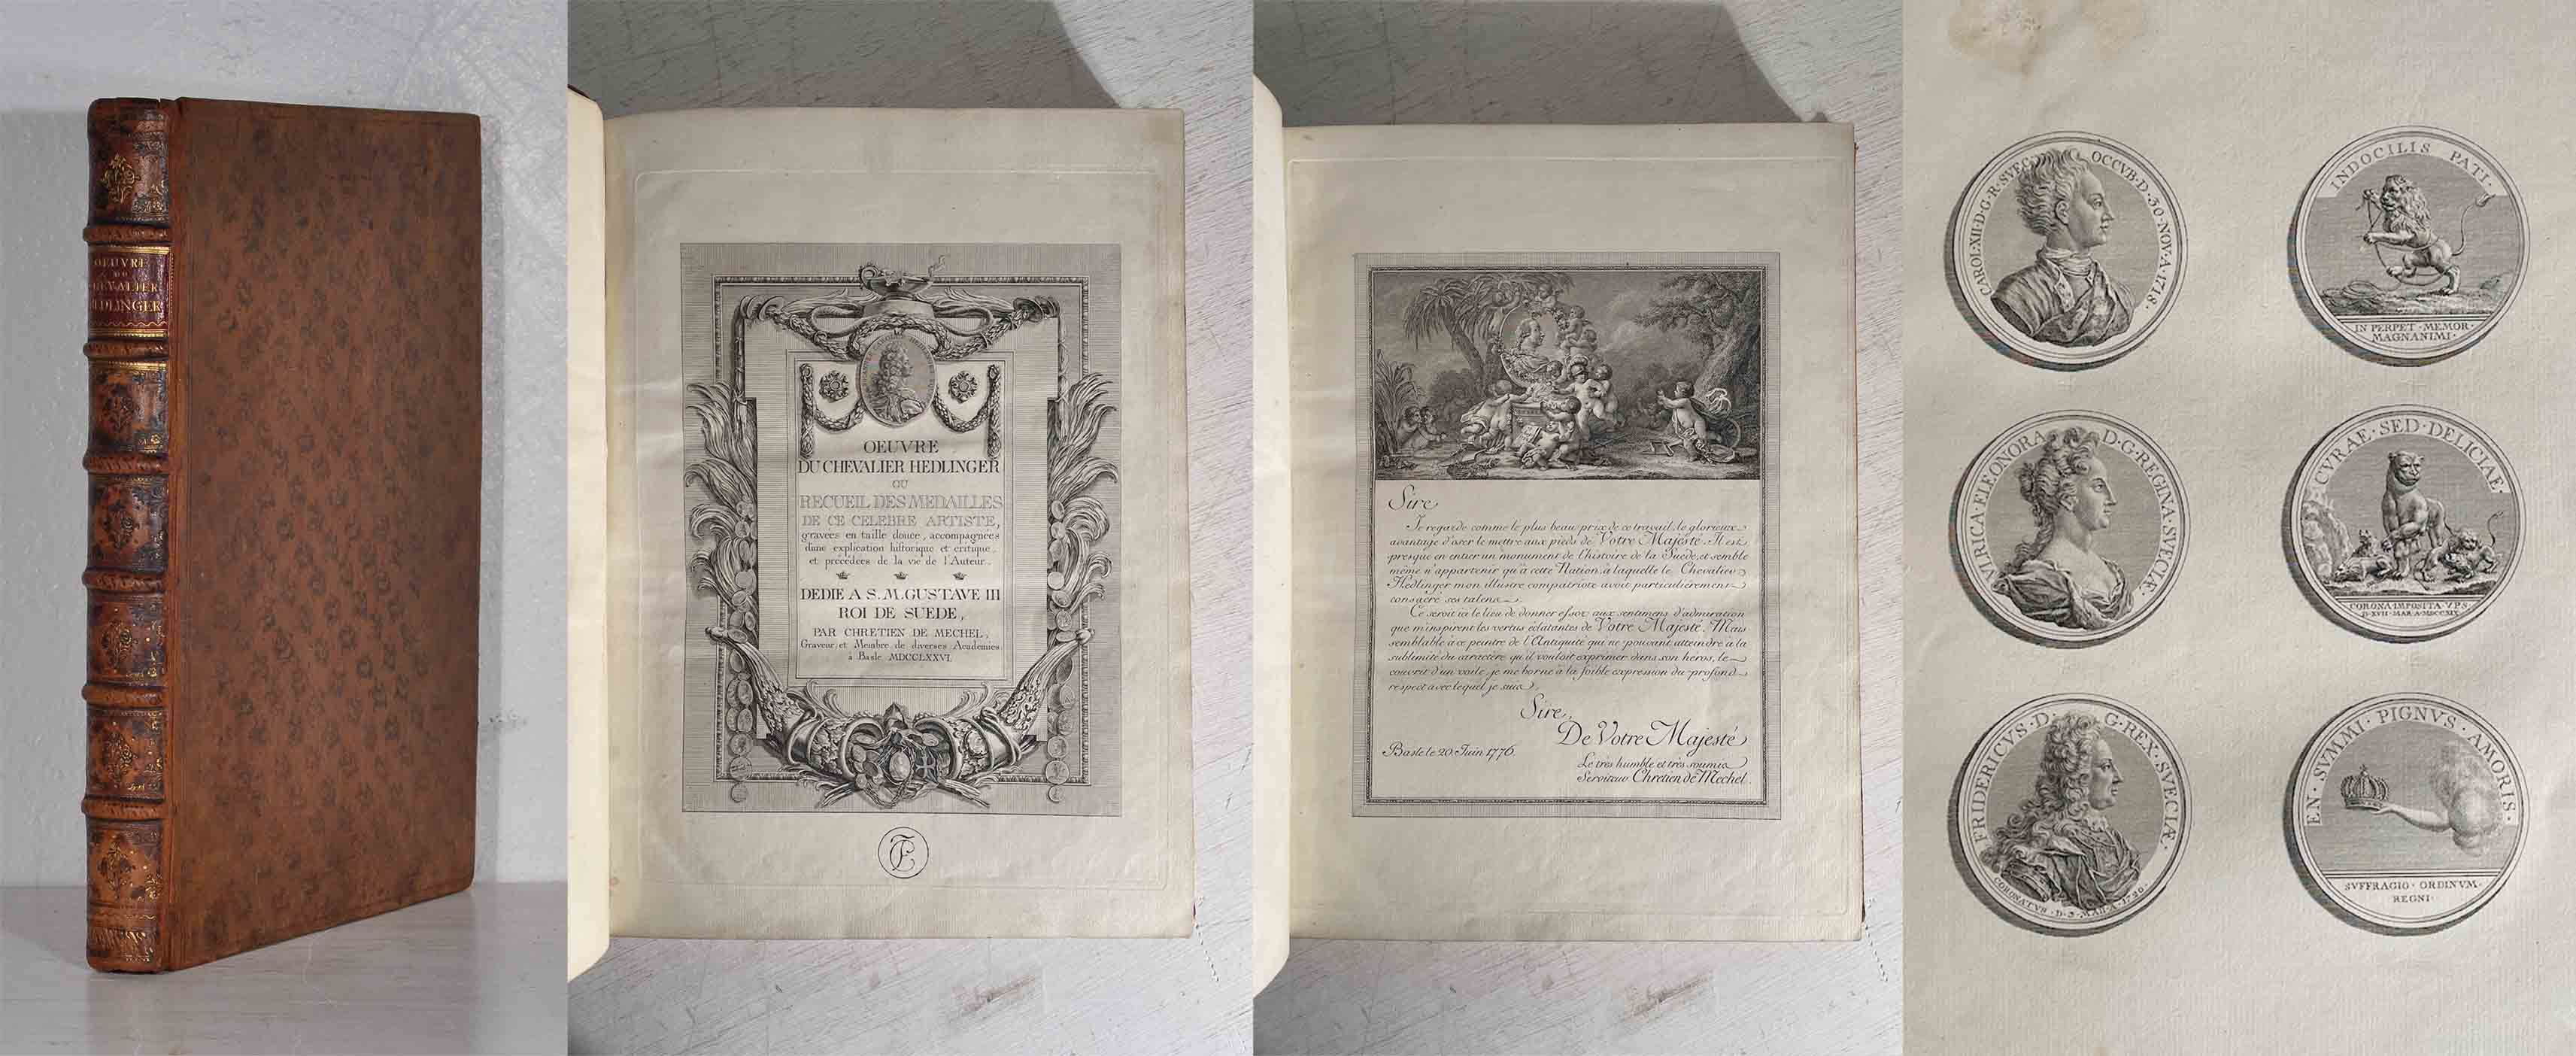 OEUVRE
DU
CHEVALIER
HEDLINGER
OEUVRE
DU CHEVALIER HEDLINGER
OU
RECUEIL DES MEDAILLES
DE CE CELEBRE ARTISTE,
gravées en taille douce, accompagnées
dune explication historique et critique,
et précédées de la vie de l'Auteur.
DEDIE A S. M. GUSTAVE III
ROI DE SUEDE,
PAR CHRETIEN DE MECHEL,
Graveur et Membre de diverses Academies
à Basle MDCCLXXVI.
Sire
Je regarde comme le plus beau prix de ce travail, le glorieux
avantage d'oser le mettre aux pieds de Votre Majesté. Il est
presque en entier un monument de l'histoire de la Suède, et semble
même n'appartenir qu'à cette Nation, à laquelle le Chevalier
Hedlinger mon illustre compatriote avoit particulièrement
consacré ses talens.
Ce seroit ici le lieu de donner essor aux sentimens d'admiration
que m'inspirent les vertus éclatantes de Votre Majesté. Mais
semblable à ce peintre de l'Antiquité qui ne pouvant atteindre à la
sublimité du caractère qu'il vouloit exprimer dans son heros, le
couvrit d'un voile, je me borne à la foible expression du profond
respect avec lequel je suis
Sire,
De Votre Majesté
Basle le 20. Juin 1776.
Le très humble et très soumis
Serviteur Chretien de Mechel.
CAROL·XII·D·G·R·SVEC· OCCVB·D·30·NOV·A·1718·
INDOCILIS PATI·
IN PERPET·MEMOR·
MAGNANIMI·
VLRICA·ELEONORA D·G·REGINA·SVECIÆ·
CVRAE·SED·DELICIAE·
CORONA·IMPOSITA·VPS·
D·XVII·MAR·A·MDCCXIX·
FRIDERICVS·D· G·REX·SVECIÆ·
CORONATVS·D·3·MAII·A·1720·
EN·SVMMI·PIGNVS·AMORIS·
SVFFRAGIO·ORDINVM·
REGNI·